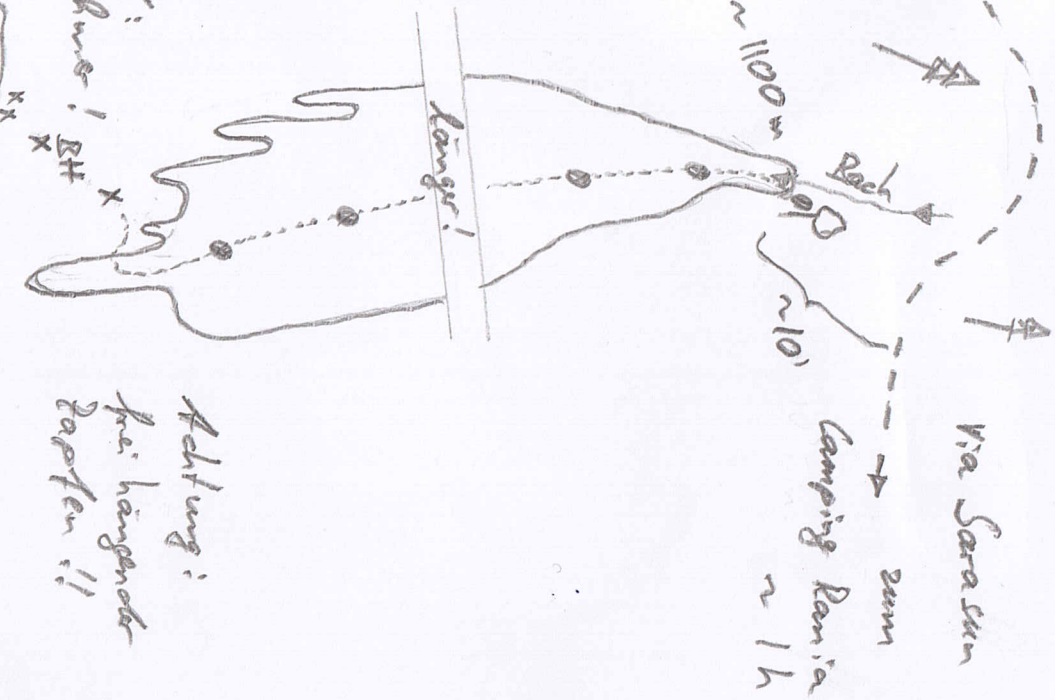 Via Sarasun
zum
Camping Rania
~ 1h
Bach
~10'
~ 1100 m
länger!
Achtung:
frei hängender
Zapfen !!
BH